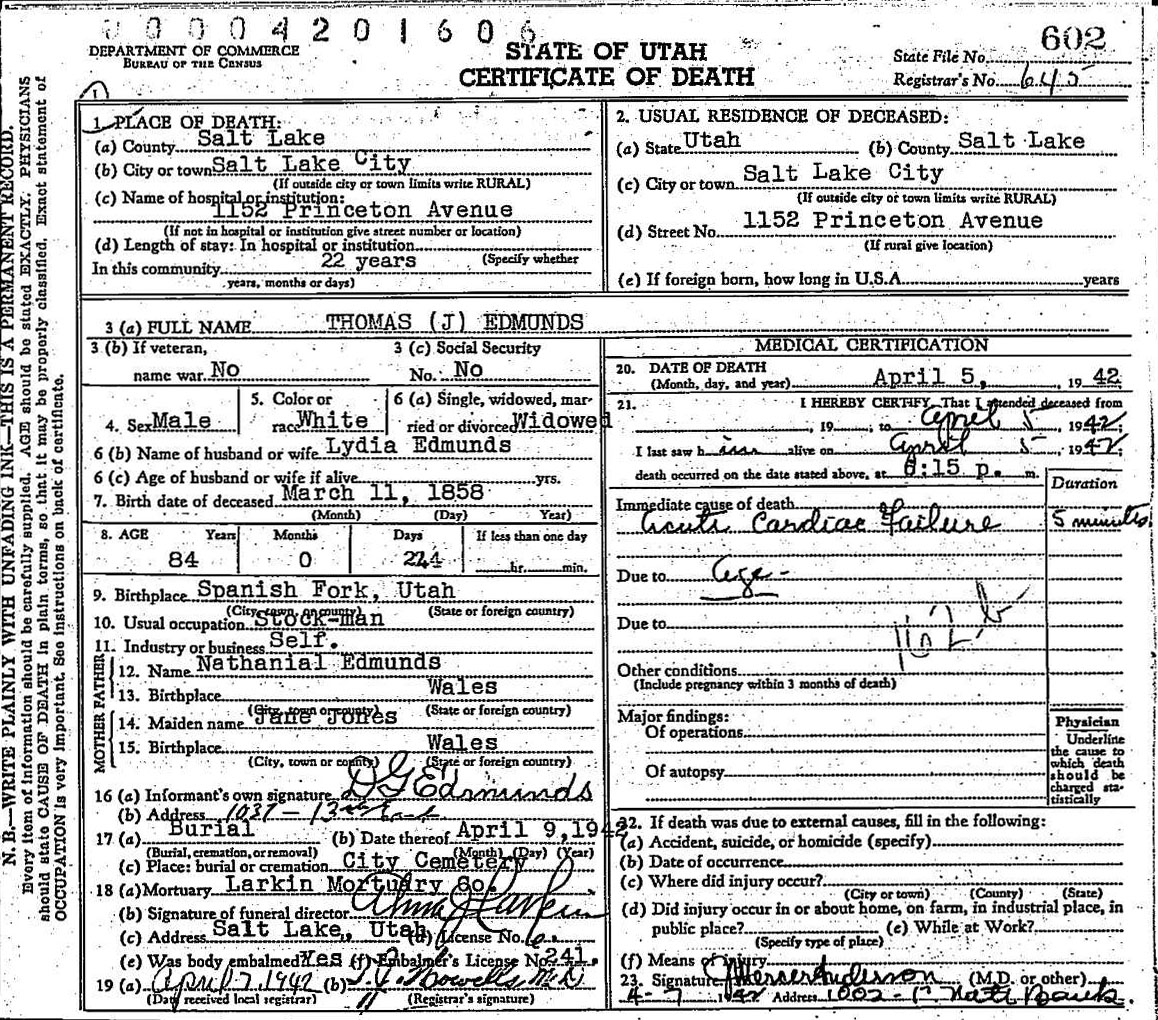 00004201606
DEPARTMENT OF COMMERCE
BUREAU OF THE CENSUS
STATE OF UTAH
CERTIFICATE OF DEATH
State File No. 602
Registrar's No. 645
N. B.—WRITE PLAINLY WITH UNFADING INK—THIS IS A PERMANENT RECORD.
Every item of information should be carefully supplied. AGE should be stated EXACTLY. PHYSICIANS
should state CAUSE OF DEATH in plain terms, so that it may be properly classified. Exact statement of
OCCUPATION is very important. See instructions on back of certificate.
1
1. PLACE OF DEATH:
(a) County Salt Lake
(b) City or town Salt Lake City
(If outside city or town limits write RURAL)
(c) Name of hospital or institution:
1152 Princeton Avenue
(If not in hospital or institution give street number or location)
(d) Length of stay: In hospital or institution
(Specify whether
In this community 22 years
years, months or days)
2. USUAL RESIDENCE OF DECEASED:
(a) State Utah (b) County Salt Lake
(c) City or town Salt Lake City
(If outside city or town limits write RURAL)
(d) Street No. 1152 Princeton Avenue
(If rural give location)
(e) If foreign born, how long in U.S.A. years
3 (a) FULL NAME THOMAS (J) EDMUNDS
3 (b) If veteran,
name war No
3 (c) Social Security
No. No
4. Sex Male
5. Color or
race White
6 (a) Single, widowed, mar-
ried or divorced Widowed
6 (b) Name of husband or wife Lydia Edmunds
6 (c) Age of husband or wife if alive yrs.
7. Birth date of deceased March 11, 1858
(Month) (Day) Year)
8. AGE Years Months Days If less than one day
84 0 24 hr. min.
9. Birthplace Spanish Fork, Utah
(City, town, or county) (State or foreign country)
10. Usual occupation Stock-man
11. Industry or business Self.
FATHER
12. Name Nathanial Edmunds
13. Birthplace Wales
(City, town or county) (State or foreign country)
MOTHER
14. Maiden name Jane Jones
15. Birthplace Wales
(City, town or county) (State or foreign country)
16 (a) Informant's own signature D G Edmunds
(b) Address 1037 - 13th East
17 (a) Burial (b) Date thereof April 9, 1942
(Burial, cremation, or removal) (Month) (Day) (Year)
(c) Place: burial or cremation City Cemetery
18 (a) Mortuary Larkin Mortuary Co.
(b) Signature of funeral director Larkin
(c) Address Salt Lake, Utah (d) License No. 6
(e) Was body embalmed Yes (f) Embalmer's License No. 241.
19 (a) April 7, 1942 (b) M.D
(Date received local registrar) (Registrar's signature)
MEDICAL CERTIFICATION
20. DATE OF DEATH
(Month, day, and year) April 5, 1942
21. I HEREBY CERTIFY, That I attended deceased from
, 19 , to April 5 , 1942;
I last saw him alive on April 5 , 1942;
death occurred on the date stated above, at :15 p. m.
Duration
Immediate cause of death
Acute Cardiac Failure 5 minutes
Due to Age -
Due to
162 b
Other conditions
(Include pregnancy within 3 months of death)
Major findings:
Of operations
Of autopsy
Physician
Underline
the cause to
which death
should be
charged sta-
tistically
22. If death was due to external causes, fill in the following:
(a) Accident, suicide, or homicide (specify)
(b) Date of occurrence
(c) Where did injury occur?
(City or town) (County) (State)
(d) Did injury occur in or about home, on farm, in industrial place, in
public place? (e) While at Work?
(Specify type of place)
(f) Means of injury
23. Signature Anderson (M.D. or other)
4-7 1942 Address 1002 - 1st Natl Bank.